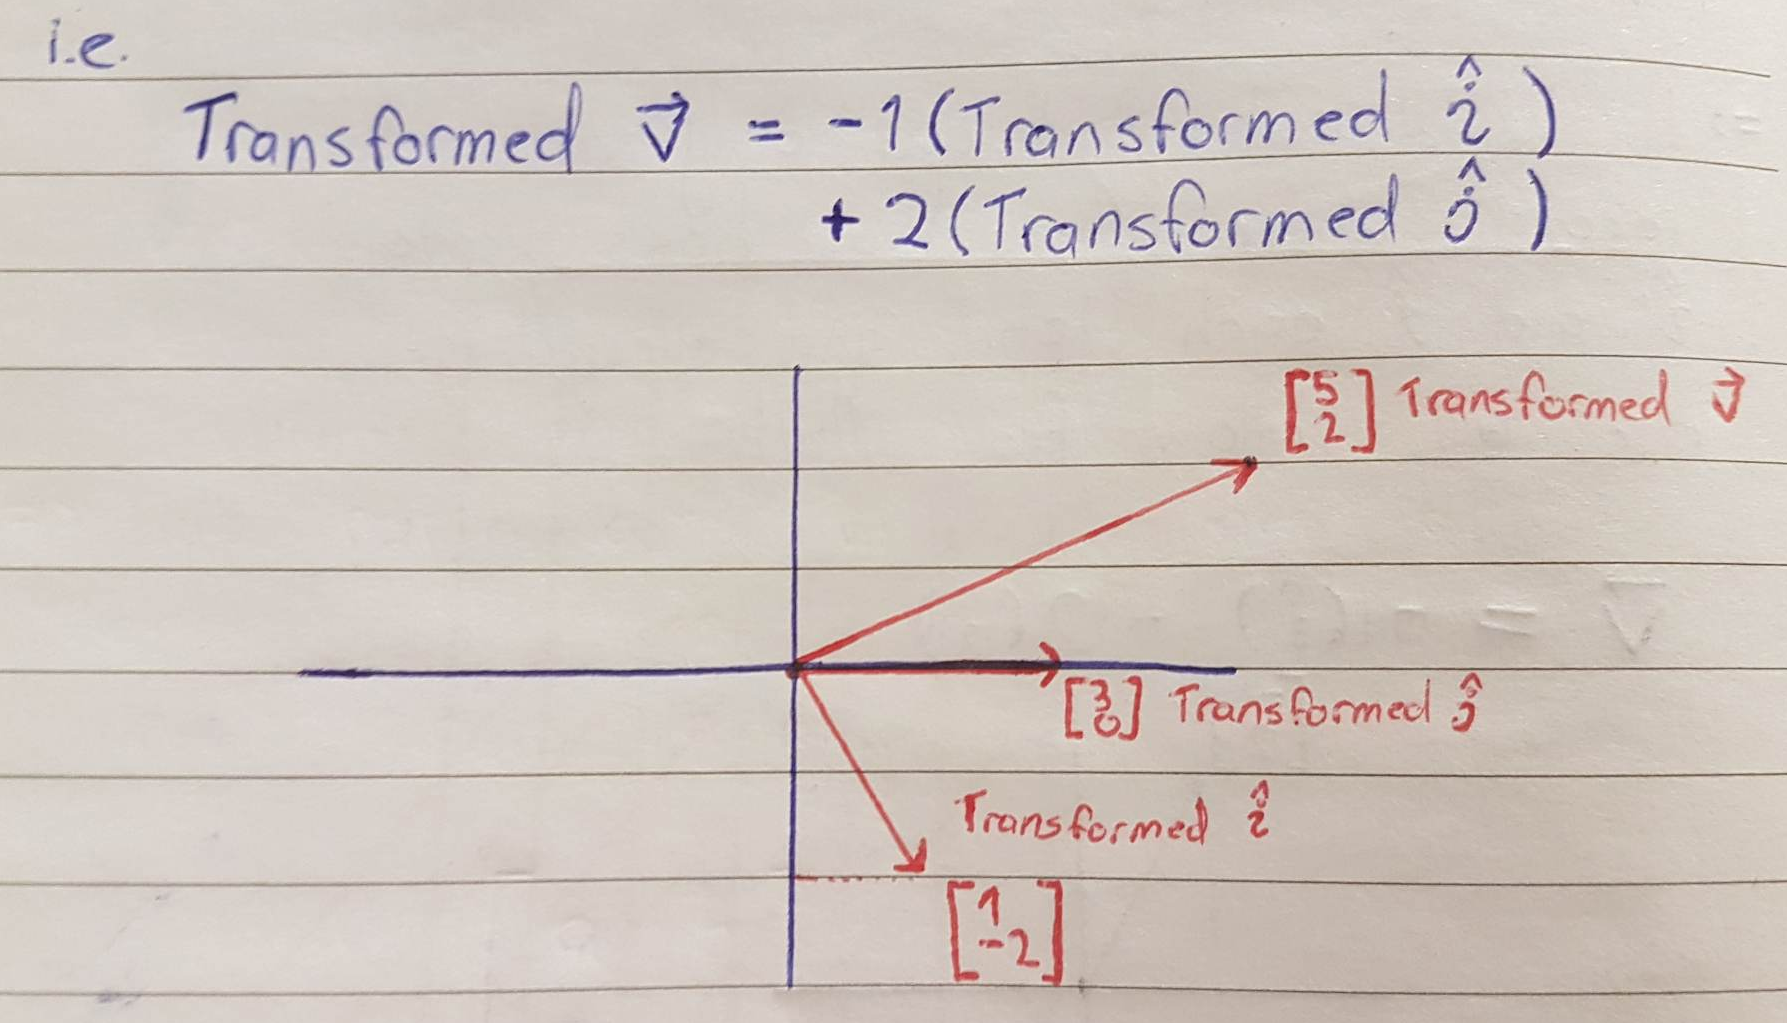 i.e.
Transformed v⃗ = -1(Transformed î)
+ 2(Transformed ĵ)
[5 2] Transformed v⃗
[3 0] Transformed ĵ
Transformed î
[1 -2]